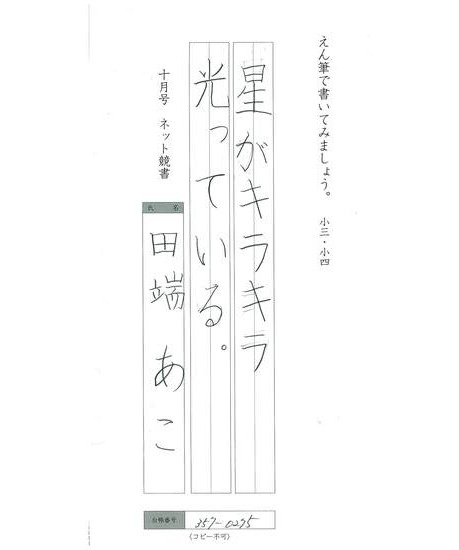 えん筆で書いてみましょう。 小三・小四
星がキラキラ
光っている。
十月号 ネット競書
氏名
田端 あこ
台帳番号
357-0295
(コピー不可)